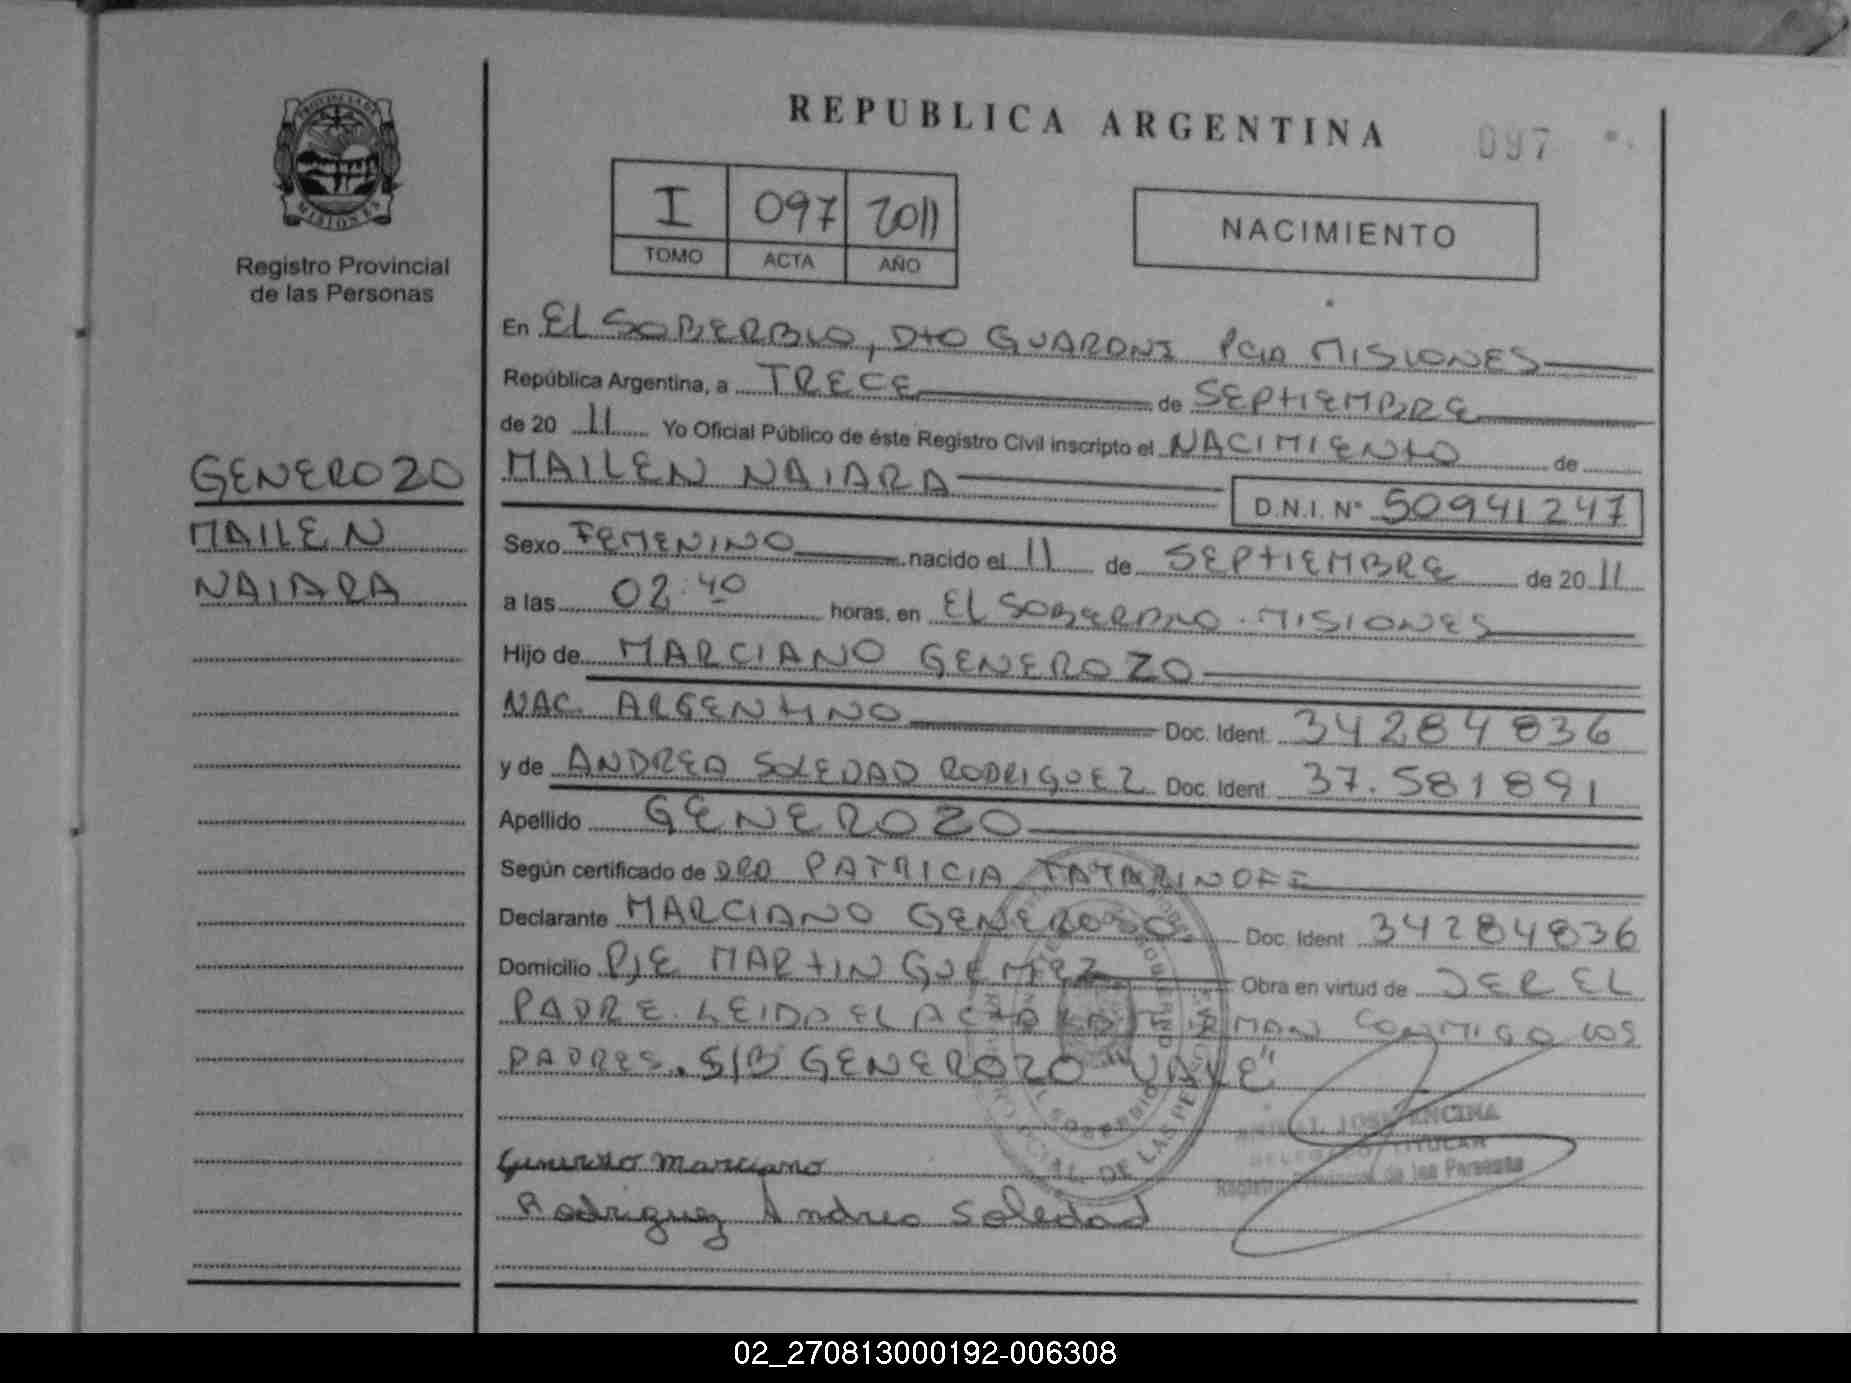 REPUBLICA ARGENTINA
097
PROVINCIA DE
MISIONES
Registro Provincial
de las Personas
I 097 2011
TOMO ACTA AÑO
NACIMIENTO
En EL SOBERBIO, DTO GUARANI PCIA MISIONES
República Argentina, a TRECE de SEPTIEMBRE
de 20 11 Yo Oficial Público de éste Registro Civil inscripto el NACIMIENTO de
GENEROZO
MAILEN
NAIARA
MAILEN NAIARA D.N.I. Nº 50941247
Sexo FEMENINO nacido el 11 de SEPTIEMBRE de 20 11
a las 02:40 horas, en EL SOBERBIO. MISIONES
Hijo de MARCIANO GENEROZO
NAC. ARGENTINO Doc. Ident. 34284836
y de ANDREA SOLEDAD RODRIGUEZ Doc. Ident. 37.581891
Apellido GENEROZO
Según certificado de DRA PATRICIA TATARINOFF
Declarante MARCIANO GENEROSO Doc. Ident 34284836
Domicilio PJE MARTIN GUEMEZ Obra en virtud de SER EL
PADRE. LEIDA EL ACTA LA FIRMAN CONMIGO LOS
PADRES. S/B GENEROZO "VALE"
JOSE ENCINA
DELEGADO TITULAR
Registro Provincial de las Personas
Generozo Marciano
Rodriguez Andrea Soledad
02_270813000192-006308